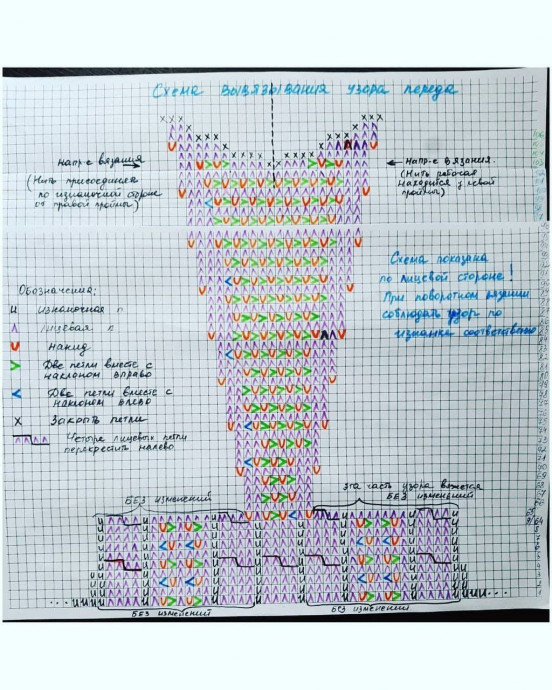 Схема вывязывания узора переда
напр-е вязания
(Нить присоединяем
по изнаночной стороне
от правой проймы)
напр-е вязания.
(Нить рабочая
находится у левой
проймы)
Схема показана
по лицевой стороне!
При поворотном вязании
соблюдать узор по
изнанке соответственно
Обозначения:
И изнаночная п
Λ лицевая п
U накид
> Две петли вместе с
наклоном вправо
< Две петли вместе с
наклоном влево
X Закрыть петли
Четыре лицевых петли
перекрестить налево
БЕЗ изменений
Эта часть узора вяжется
БЕЗ изменений
БЕЗ изменений
БЕЗ изменений